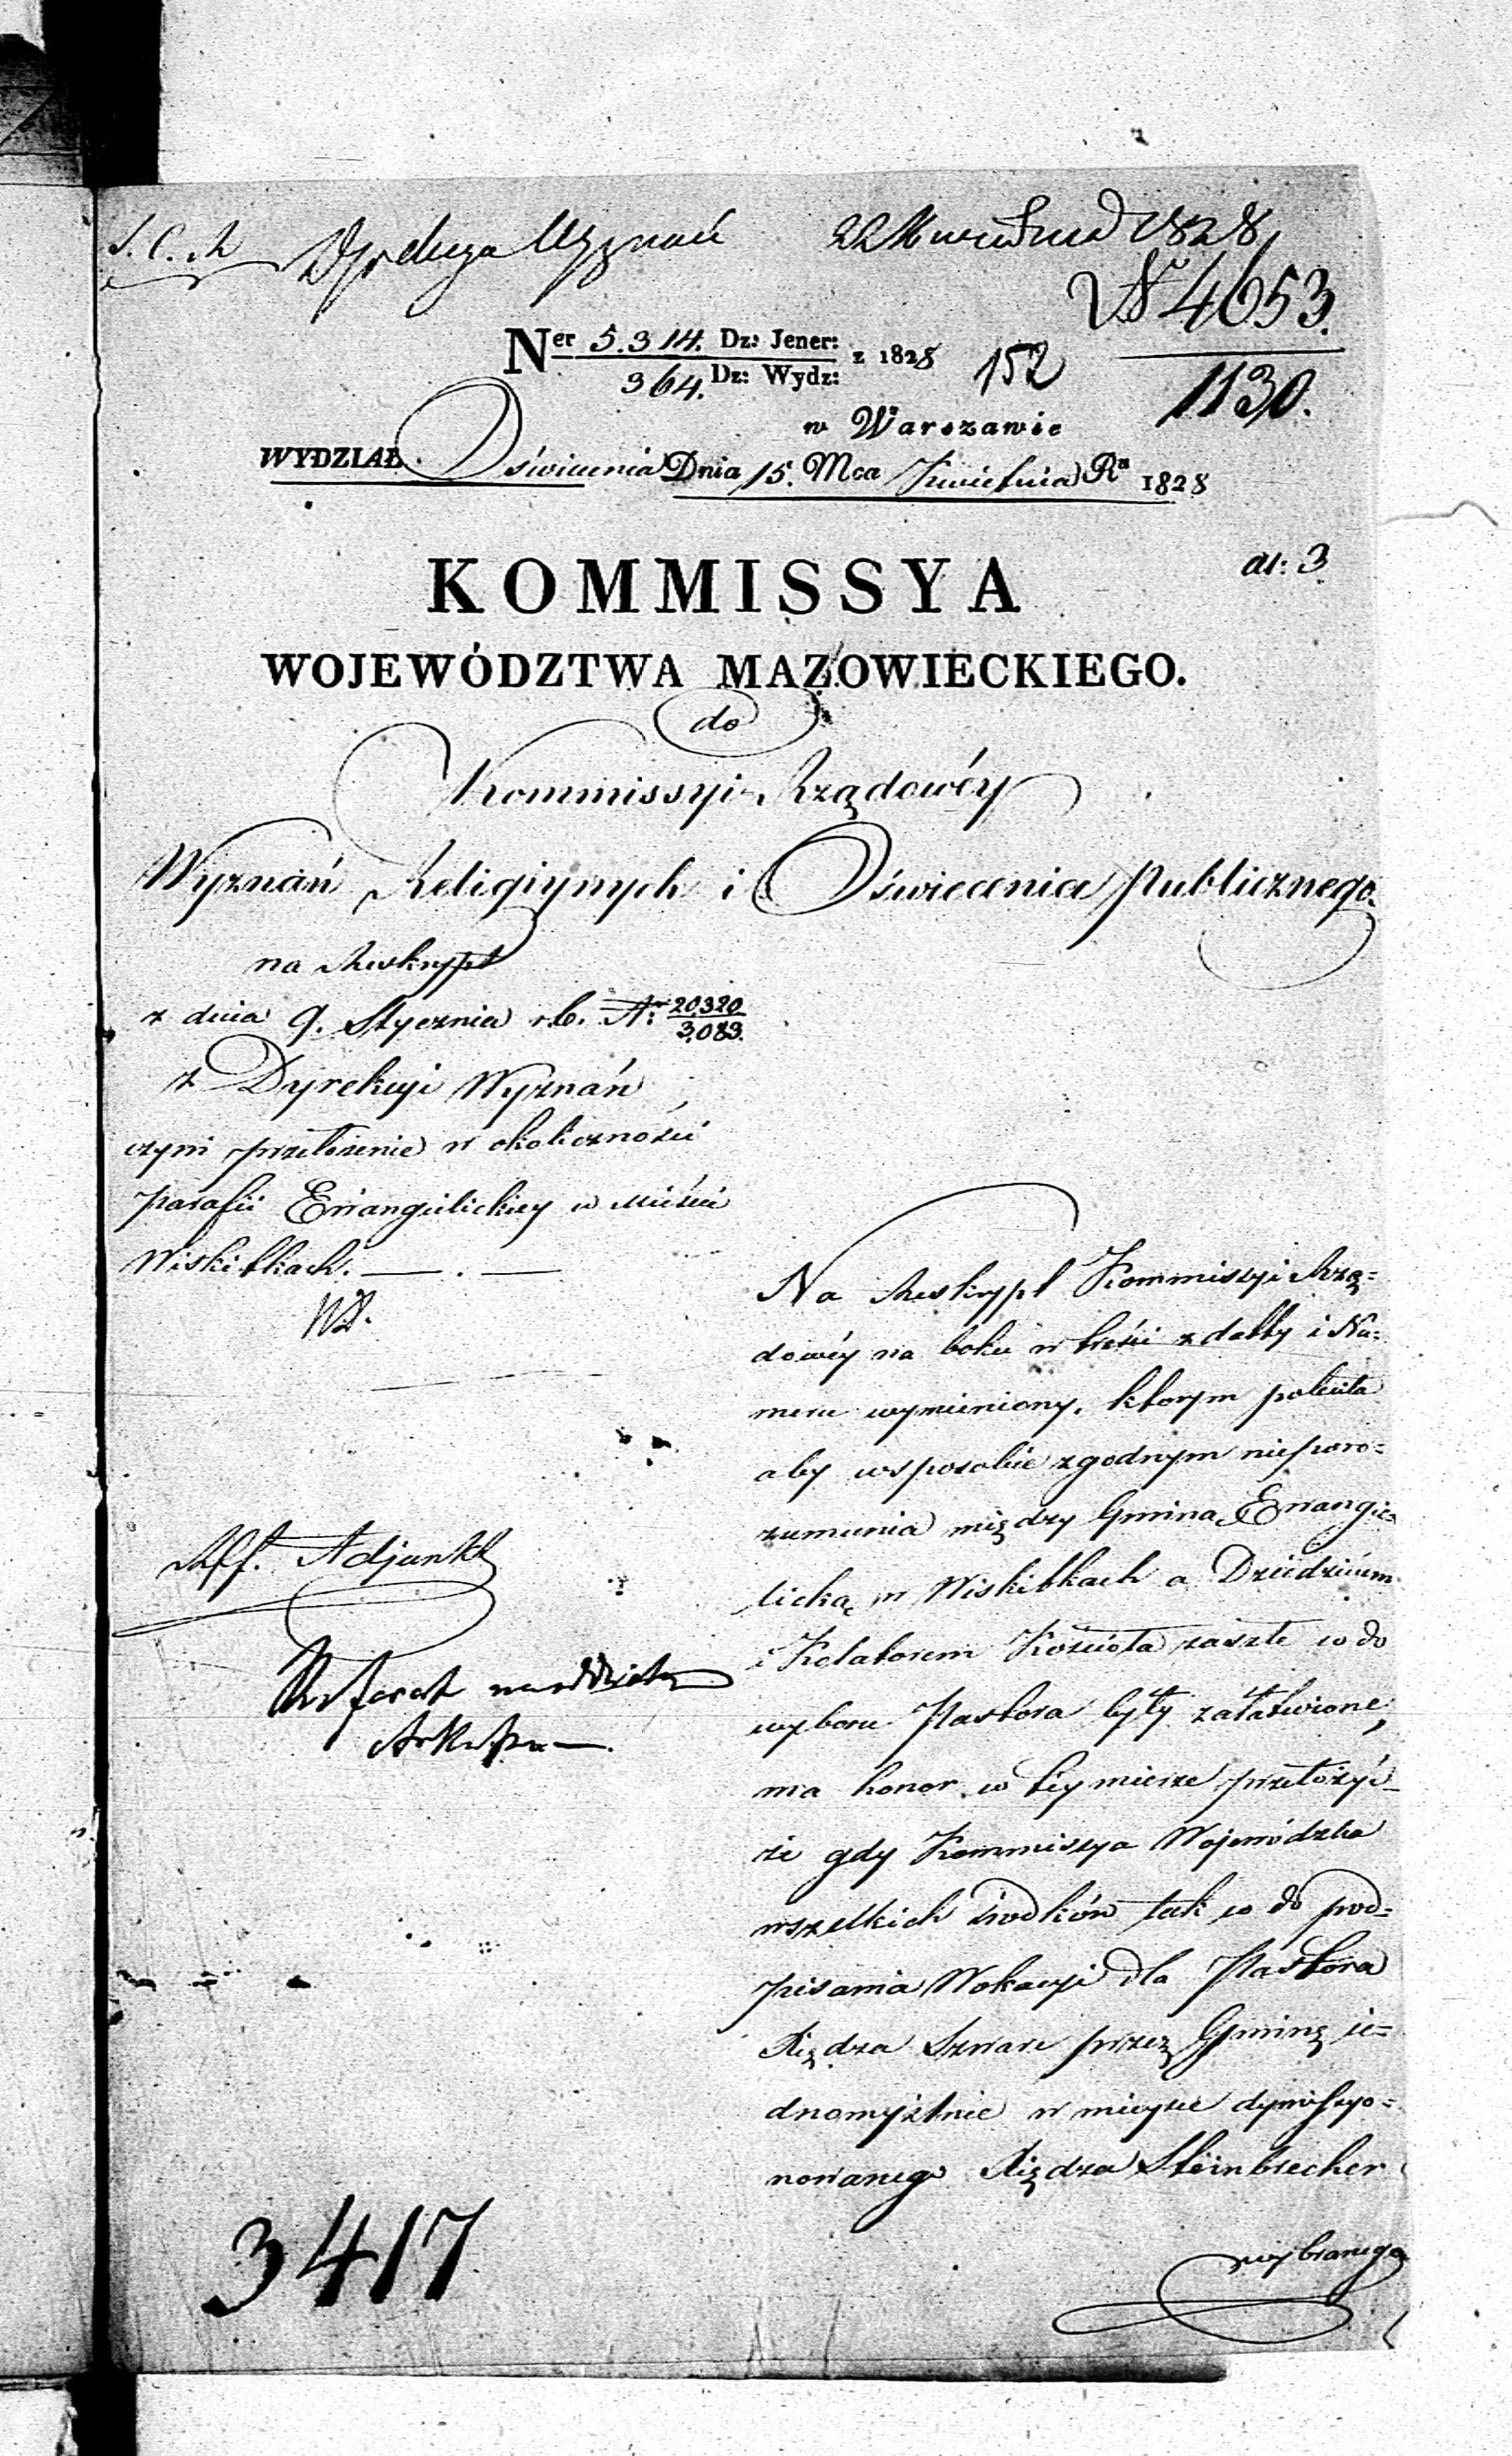 Dyrekcya Wyznań 22 Kwietnia 1828
N 4653.
1130.
Ner 5.314. Dz: Jener: z 1828 152
364. Dz: Wydz:
w Warszawie
WYDZIAŁ Oświecenia Dnia 15. Mca Kwietnia Ru 1828
KOMMISSYA
at: 3
WOJEWÓDZTWA MAZOWIECKIEGO.
do
Kommissyi Rządowéy
Wyznań Religiynych i Oświecenia Publicznego.
na Reskrypt
z dnia 9. Stycznia r.b. Nr 20320
3,083.
z Dyrekcyi Wyznań
czyni przełożenie w okoliczności
parafii Ewangielickiey w Mieście
Wiskitkach.
Na Reskrypt Kommissyi Rzą=
dowéy na boku w treści z datty i Nu=
meru wymieniony, ktorym poleciła
aby w sposobie zgodnym nieporo=
zumienia między Gminą Ewangie=
licką w Wiskitkach a Dziedzicem
i Kolatorem Kościoła zaszłe co do
wyboru Pastora były załatwione,
ma honor w tey mierze przełożyć
że gdy Kommissya Wojewódzka
wszelkich środków tak co do pod=
pisania Wokacyi dla Pastora
Xiędza Szwarc przez Gminę ie=
dnomyślnie w mieysce dymissyo=
nowanego Xiędza Steinbrecher
wybranego
Adjunkt
3417